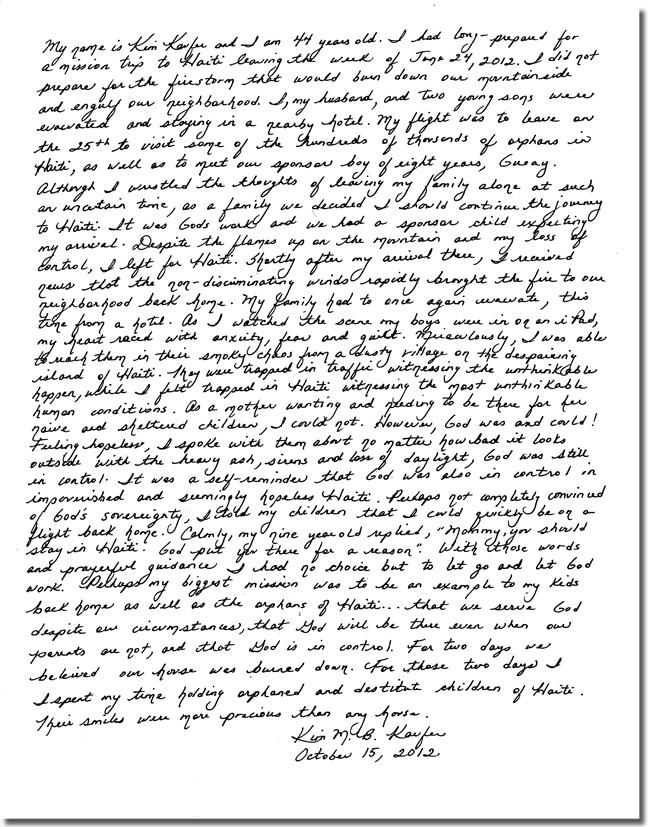 My name is Kim Kaufer and I am 44 years old. I had long-prepared for
a mission trip to Haiti leaving the week of June 24, 2012. I did not
prepare for the firestorm that would burn down our mountainside
and engulf our neighborhood. I, my husband, and two young sons were
evacuated and staying in a nearby hotel. My flight was to leave on
the 25th to visit some of the hundreds of thousands of orphans in
Haiti, as well as to meet our sponsor boy of eight years,
Although I wrestled the thoughts of leaving my family alone at such
an uncertain time, as a family we decided I should continue the journey
to Haiti. It was God's work and we had a sponsor child expecting
my arrival. Despite the flames up on the mountain and my loss of
control, I left for Haiti. Shortly after my arrival there, I received
news that the non-discriminating winds rapidly brought the fire to our
neighborhood back home. My family had to once again evacuate, this
time from a hotel. As I watched the scene my boys were in on an iPad,
my heart raced with anxiety, fear and guilt. Miraculously, I was able
to reach them in their smokey chaos from a dusty village on the despairing
island of Haiti. They were trapped in traffic witnessing the unthinkable
happen, while I felt trapped in Haiti witnessing the most unthinkable
human conditions. As a mother wanting and needing to be there for her
naive and sheltered children, I could not. However, God was and could!
Feeling hopeless, I spoke with them about no matter how bad it looks
outside with the heavy ash, sirens and loss of daylight, God was still
in control. It was a self-reminder that God was also in control in
impoverished and seemingly hopeless Haiti. Perhaps not completely convinced
of God's sovereignty, I told my children that I could quickly be on a
flight back home. Calmly, my nine year old replied, "Mommy, you should
stay in Haiti. God put you there for a reason". With those words
and prayerful guidance I had no choice but to let go and let God
work. Perhaps my biggest mission was to be an example to my kids
back home as well as the orphans of Haiti... that we serve God
despite our circumstances, that God will be there even when our
parents are not, and that God is in control. For two days we
beleived our house was burned down. For those two days I
I spent my time holding orphaned and destitut children of Haiti.
Their smiles were more precious than any house.
Kim M. B. Kaufer
October 15, 2012